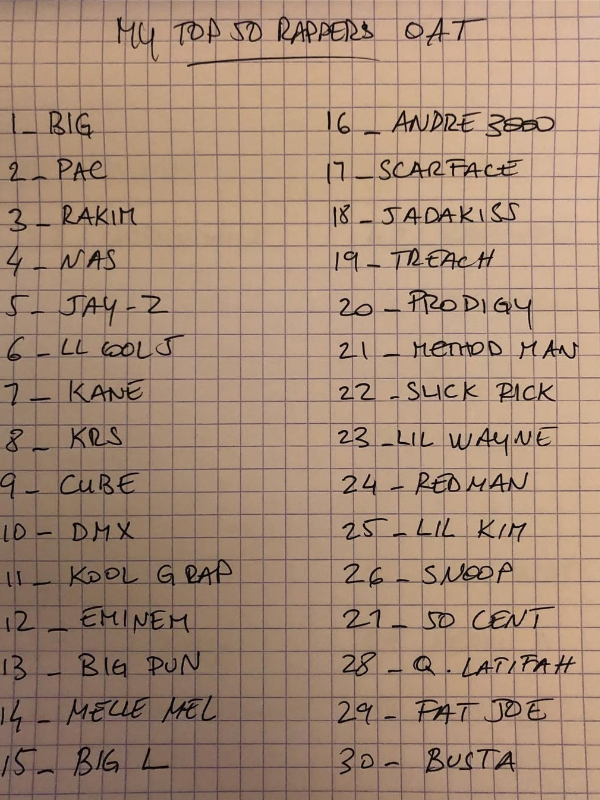 MY TOP 50 RAPPERS OAT
1_ BIG
2_ PAC
3_ RAKIM
4_ NAS
5_ JAY-Z
6_ LL COOL J
7_ KANE
8_ KRS
9_ CUBE
10_ DMX
11_ KOOL G RAP
12_ EMINEM
13_ BIG PUN
14_ MELLE MEL
15_ BIG L
16_ ANDRE 3000
17_SCARFACE
18_JADAKISS
19_TREACH
20_PRODIGY
21_METHOD MAN
22_SLICK RICK
23_LIL WAYNE
24_REDMAN
25_LIL KIM
26_SNOOP
27_50 CENT
28_Q. LATIFAH
29_FAT JOE
30_BUSTA